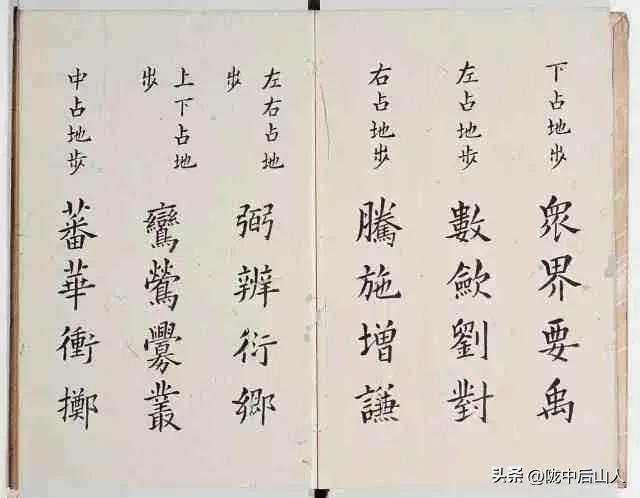 下占地步
衆界要禹
左占地步
數斂劉對
右占地步
騰施增謙
左右占地
步
弼辨衍鄉
上下占地
步
鸞鶯爨叢
中占地步
蕃華衝擲
头条 @陇中后山人